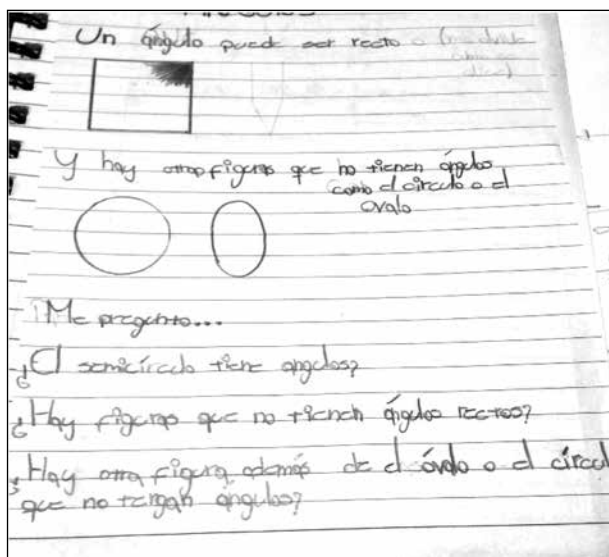 Un ángulo puede ser recto o
Y hay otras figuras que no tienen ángulos
como el círculo o el
ovalo
Me pregunto...
¿El semicírculo tiene angulos?
¿Hay figuras que no tienen ángulos rectos?
¿Hay otra figura además de el óvalo o el círcul
que no tengan ángulos?